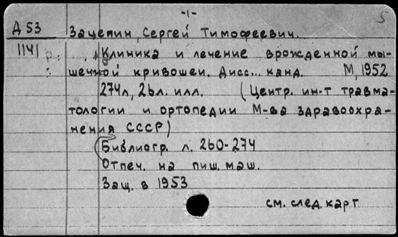 -1-
5
Д 53 Зацепин, Сергей Тимофеевич.
1141 Клиника и лечение врожденной мы-
шечной кривошеи. Дисс... канд. М, 1952
274л, 26л. илл. (Центр. ин-т травма-
тологии и ортопедии М-ва здравоохра-
нения СССР)
Библиогр. л. 260-274
Отпеч. на пиш. маш.
Защ. в 1953
см. след. карт